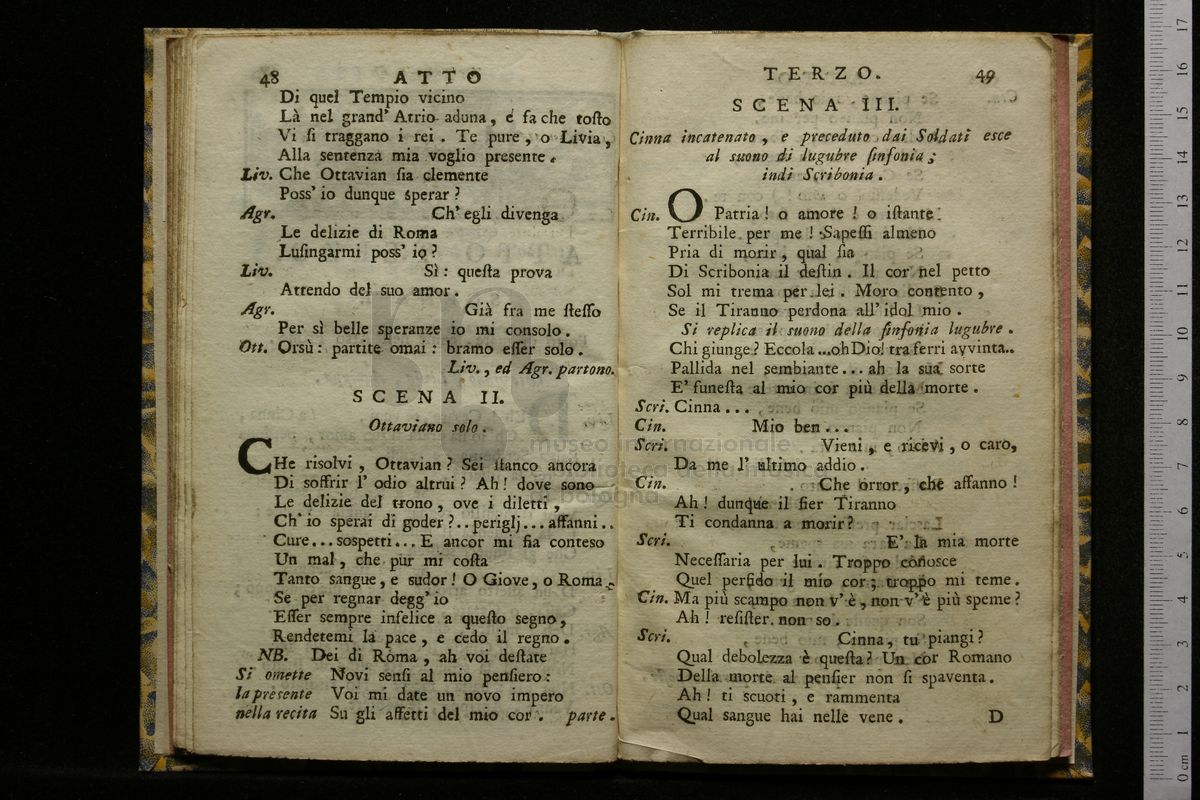 48 ATTO
Di quel Tempio vicino
Là nel grand' Atrio aduna, e fa che tosto
Vi si traggano i rei. Te pure, o Livia,
Alla sentenza mia voglio presente.
Liv. Che Ottavian sia clemente
Poss' io dunque sperar?
Agr. Ch' egli divenga
Le delizie di Roma
Lusingarmi poss' io?
Liv. Sì: questa prova
Attendo del suo amor.
Agr. Già fra me stesso
Per sì belle speranze io mi consolo.
Ott. Orsù: partite omai: bramo esser solo.
Liv., ed Agr. partono.
SCENA II.
Ottaviano solo.
CHe risolvi, Ottavian? Sei stanco ancora
Di soffrir l' odio altrui? Ah! dove sono
Le delizie del trono, ove i diletti,
Ch' io sperai di goder?.. periglj... affanni..
Cure... sospetti... E ancor mi fia conteso
Un mal, che pur mi costa
Tanto sangue, e sudor! O Giove, o Roma
Se per regnar degg' io
Esser sempre infelice a questo segno,
Rendetemi la pace, e cedo il regno.
NB. Dei di Roma, ah voi destate
Si omette Novi sensi al mio pensiero:
la presente Voi mi date un novo impero
nella recita Su gli affetti del mio cor. parte.
TERZO. 49
SCENA III.
Cinna incatenato, e preceduto dai Soldati esce
al suono di lugubre sinfonia;
indi Scribonia.
Cin. O Patria! o amore! o istante
Terribile per me! Sapessi almeno
Pria di morir, qual sia
Di Scribonia il destin. Il cor nel petto
Sol mi trema per lei. Moro contento,
Se il Tiranno perdona all' idol mio.
Si replica il suono della sinfonia lugubre.
Chi giunge? Eccola...oh Dio! tra ferri avvinta..
Pallida nel sembiante... ah la sua sorte
E' funesta al mio cor più della morte.
Scri. Cinna...
Cin. Mio ben...
Scri. Vieni, e ricevi, o caro,
Da me l' ultimo addio.
Cin. Che orror, che affanno!
Ah! dunque il fier Tiranno
Ti condanna a morir?
Scri. E' la mia morte
Necessaria per lui. Troppo conosce
Quel perfido il mio cor; troppo mi teme.
Cin. Ma più scampo non v' è, non v' è più speme?
Ah! resister non so.
Scri. Cinna, tu piangi?
Qual debolezza è questa? Un cor Romano
Della morte al pensier non si spaventa.
Ah! ti scuoti, e rammenta
Qual sangue hai nelle vene. D
museo internazionale
biblioteca della musica
bologna
0 cm 1 2 3 4 5 6 7 8 9 10 11 12 13 14 15 16 17